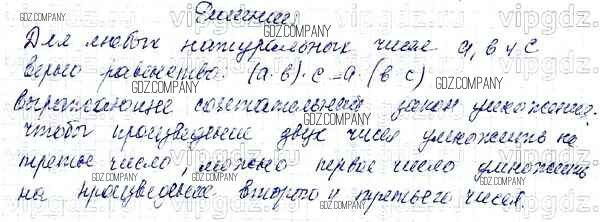 Решение
Для любых натуральных чисел a, в и с
верно равенство: (a·в)·с=a·(в с)
выражающее сочетательный закон умножения.
чтобы произведение двух чисел умножить на
третье число, можно первое число умножить
на произведение второго и третьего чисел.
GDZ.COMPANY
vipgdz.com